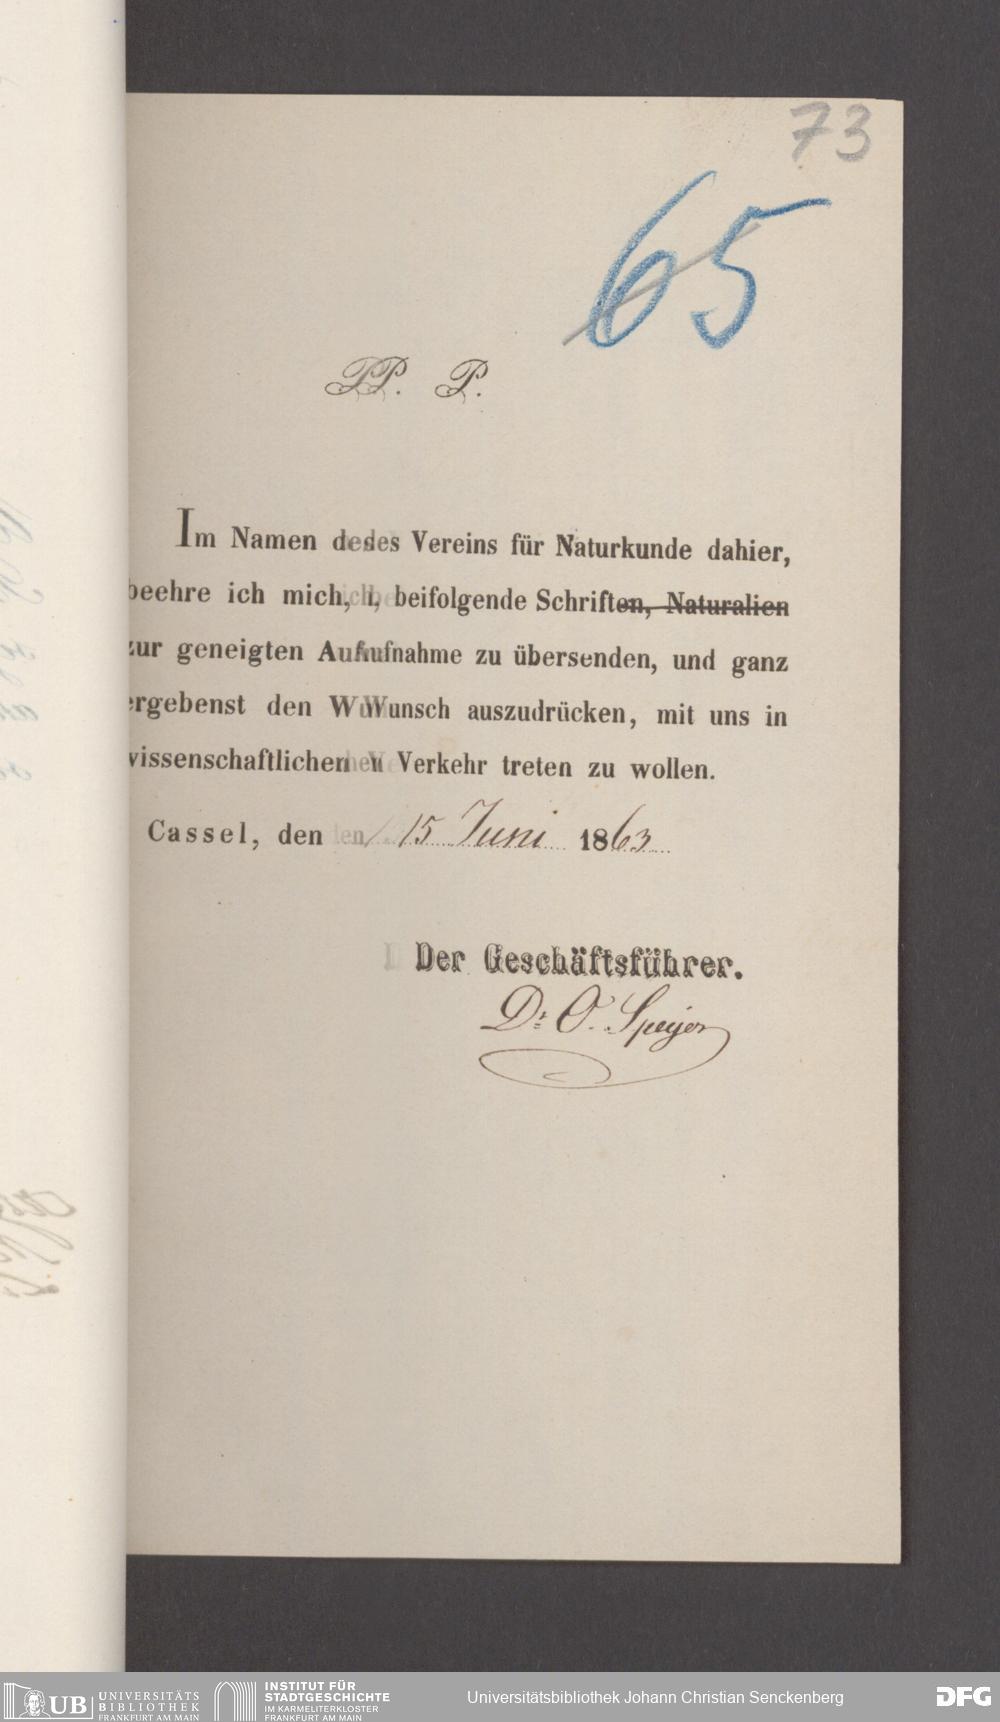 73
65
P. P.
Im Namen des Vereins für Naturkunde dahier,
beehre ich mich, beifolgende Schriften, Naturalien
zur geneigten Aufnahme zu übersenden, und ganz
ergebenst den Wunsch auszudrücken, mit uns in
wissenschaftlichen Verkehr treten zu wollen.
Cassel, den 15 Juni 1863
Der Geschäftsführer.
Dr. O. Speyer
UB UNIVERSITÄTS
BIBLIOTHEK
FRANKFURT AM MAIN
INSTITUT FÜR
STADTGESCHICHTE
IM KARMELITERKLOSTER
FRANKFURT AM MAIN
Universitätsbibliothek Johann Christian Senckenberg
DFG